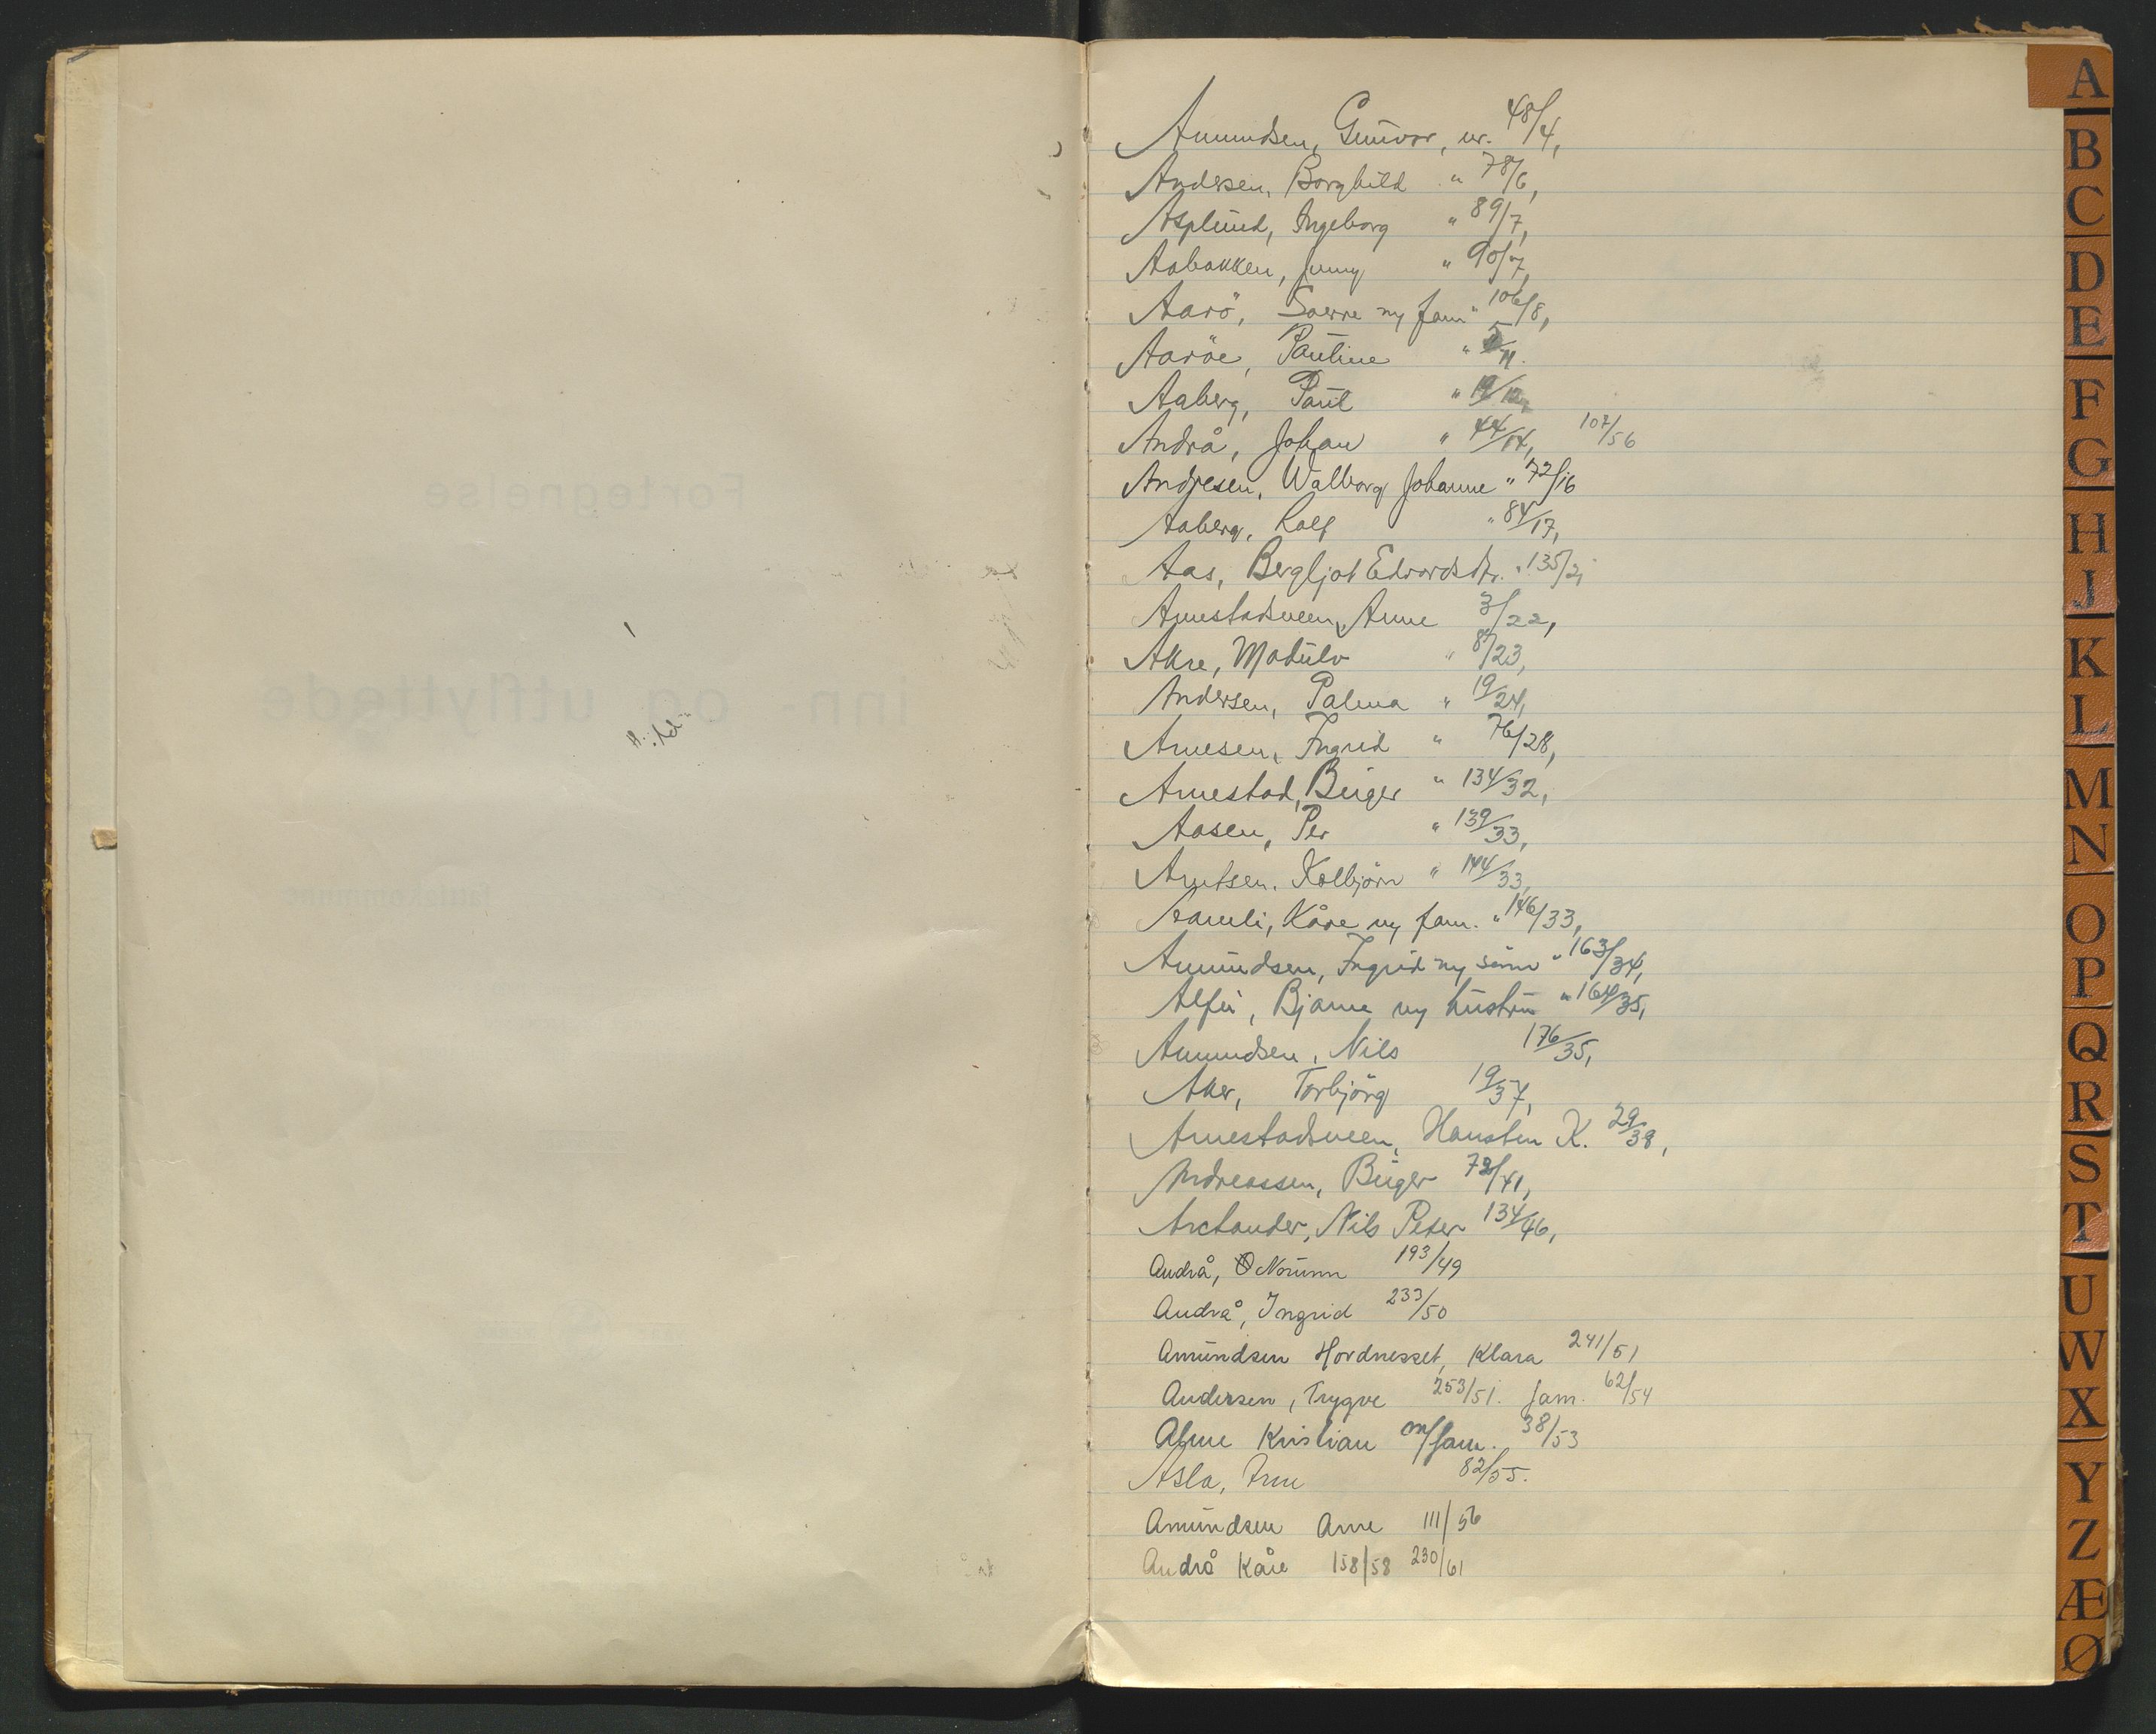 Amundsen, Gunvor, nr. 48/4,
Andersen, Borghild " 78/6,
Asplund, Ingeborg " 89/7,
Aabakken, Jenny " 90/7,
Aarö, Sverre m/ fam " 106/8,
Aaröe, Pauline " /11.
Aaberg, Paul " 19/12,
Andrå, Johan " 44/14, 107/56
Andresen, Walborg Johanne " 72/16
Aaberg, Rolf " 84/17,
Aas, Bergljot Edvardsdtr. " 135/21
Arnestadsveen, Anne 3/22,
Akre, Madulv " 8/23,
Andersen, Palma " 19/24,
Arnesen, Ingrid " 76/28,
Arnestad, Birger " 134/32,
Aasen, Per " 139/33,
Arntsen, Kolbjörn " 144/33,
Kåre m/ fam. " 146/33,
Amundsen, Ingrid m/ sönn " 163/34,
Alfei, Bjarne m/ hustru " 164/35,
Amundsen, Nils 176/35,
Aker, Torbjörg 19/37,
Arnestadsveen, Hausten K. 29/38,
Andreassen, Birger 72/41,
Arctander, Nils Peter 134/46,
Andrå, Norunn 193/49
Andrå, Ingrid 233/50
Amundsen Hordnesset, Klara 241/51
Andersen, Trygve 253/51. fam. 62/54
Alme Kristian m/fam. 38/53
Asla, 82/55.
Amundsen Arne 111/56
Andrå Kåre 158/58 230/61
A
B
C
D
E
F
G
H
J
K
L
M
N
O
P
Q
R
S
T
U
W
X
Y
Z
Æ
Ø
Fortegnelse
inn og utflyttede